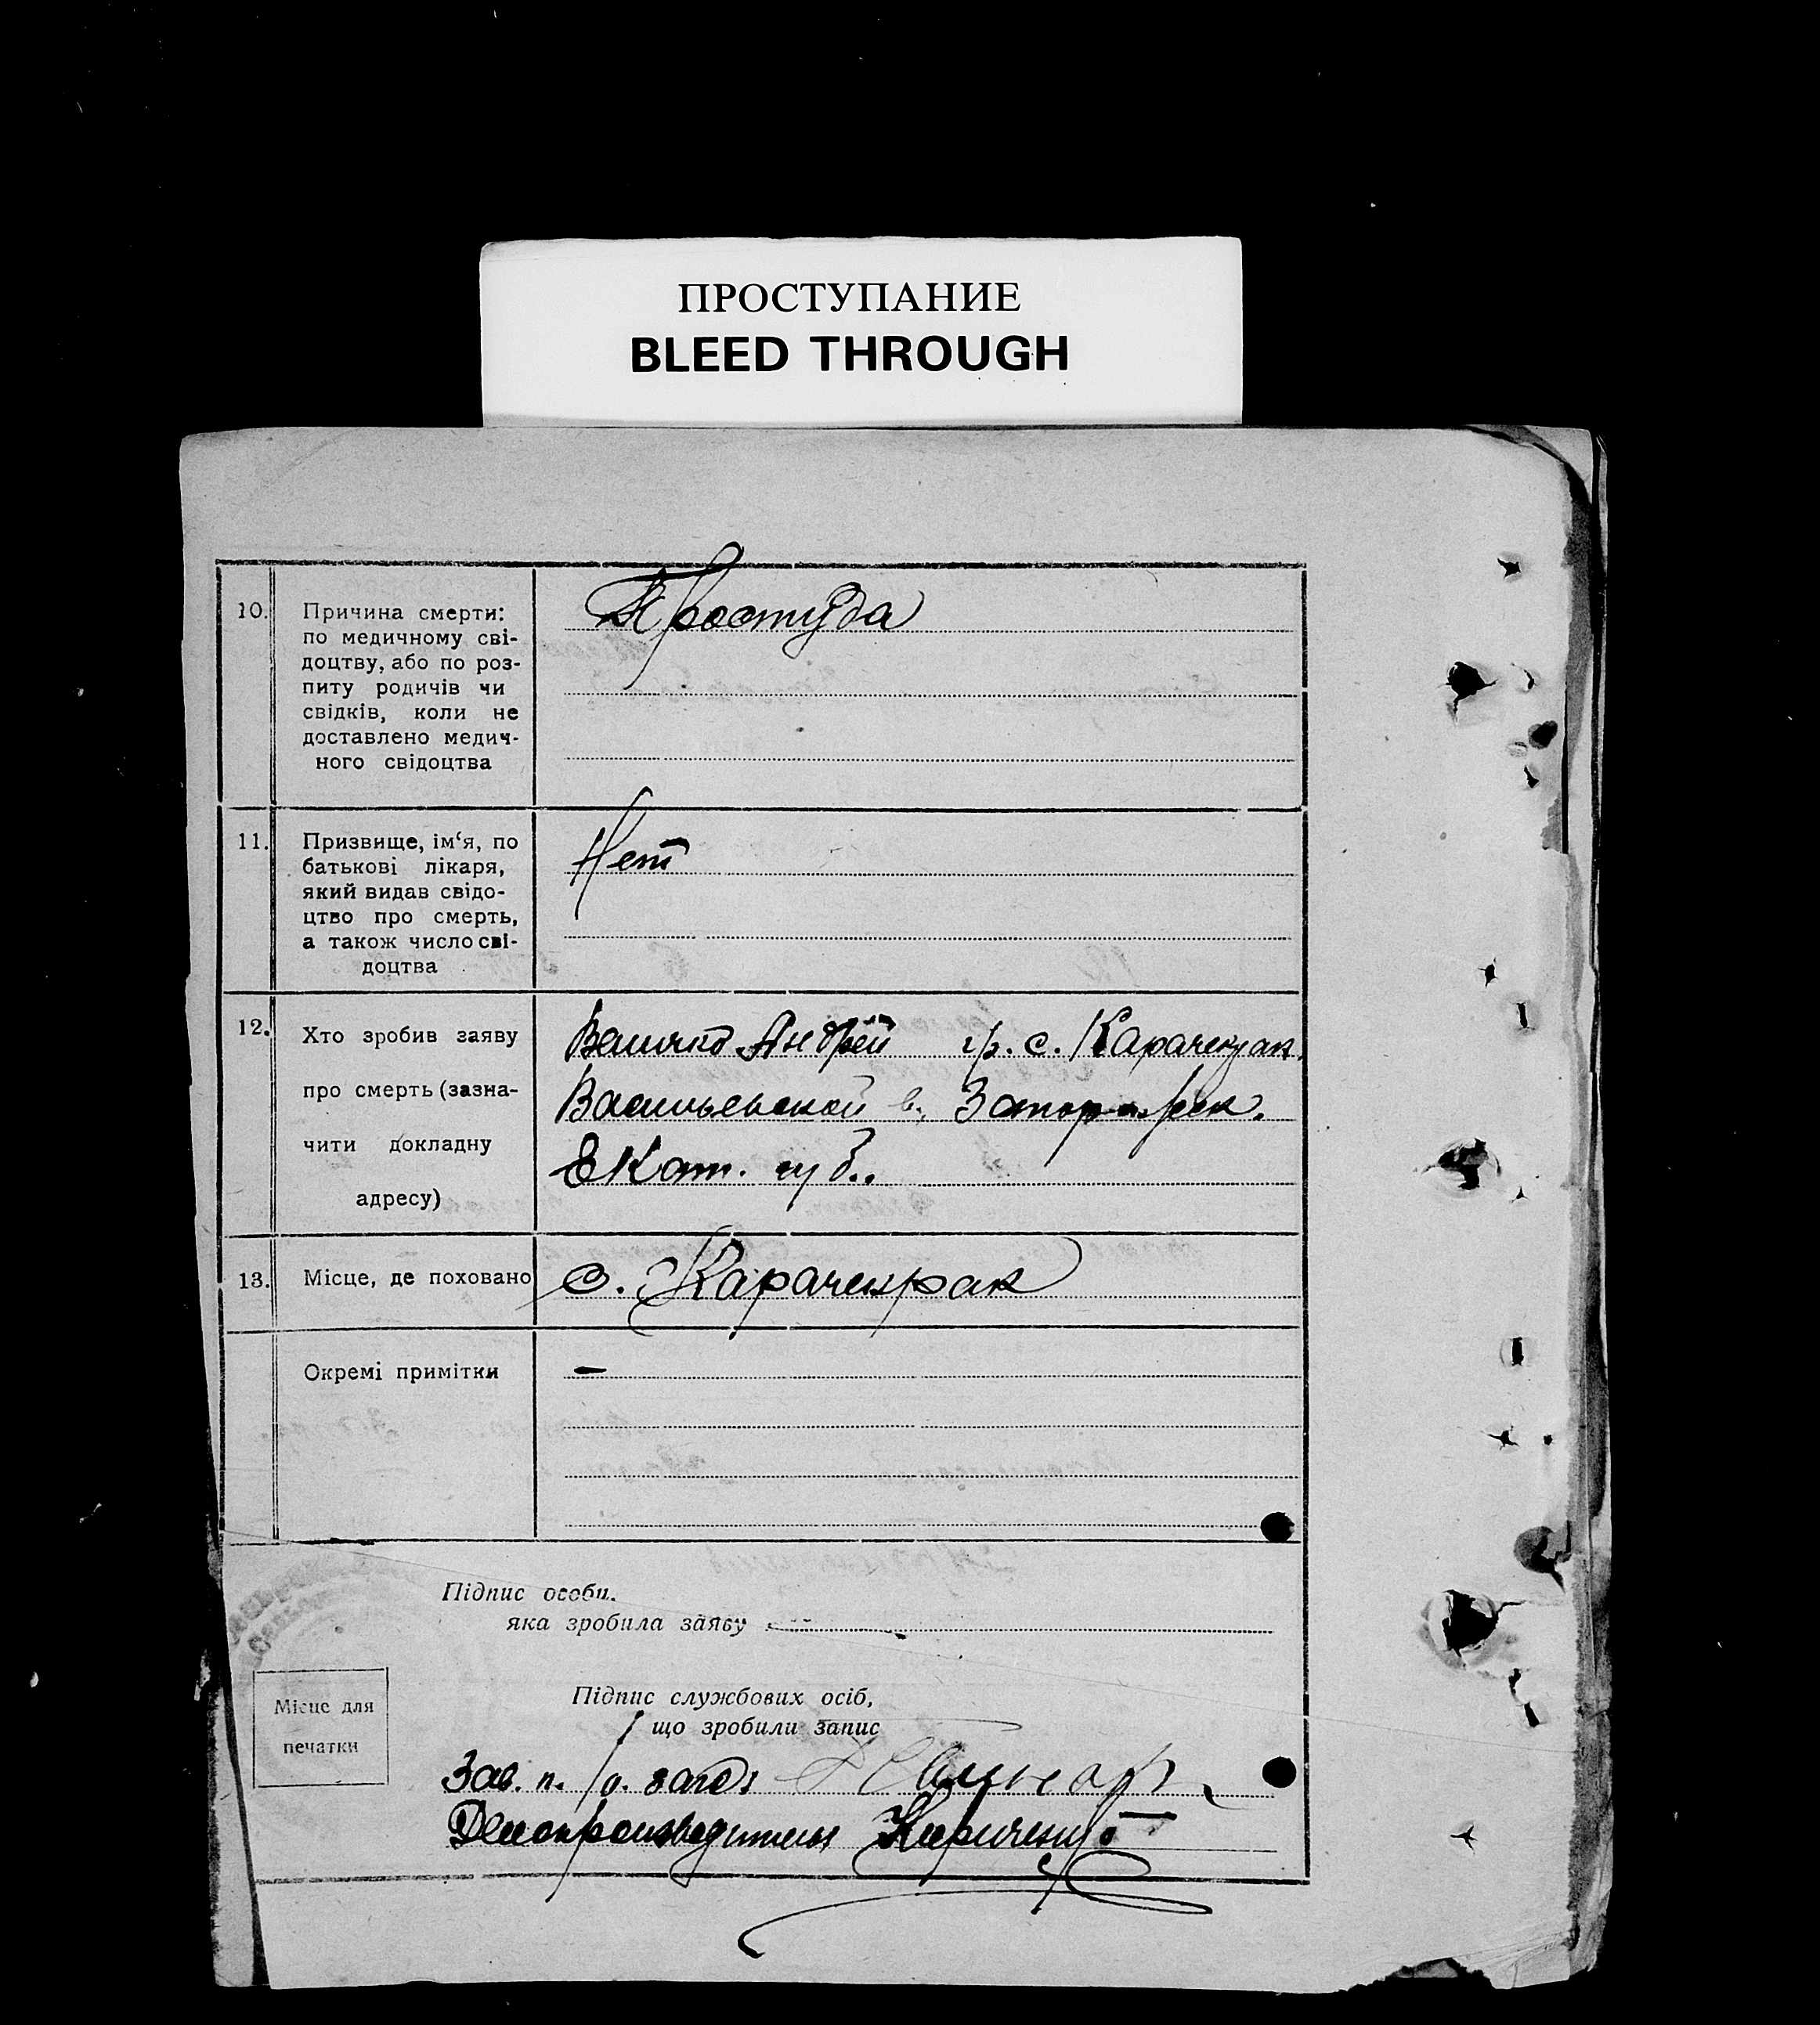 ПРОСТУПАНИЕ
BLEED THROUGH
10.
Причина смерти:
по медичному сві-
доцтву, або по роз-
питу родичів чи
свідків, коли не
доставлено медич-
ного свідоцтва
Простуда
11.
Призвище, ім‘я, по
батькові лікаря,
який видав свідо-
цтво про смерть,
а також число сві-
доцтва
Нет
12.
Хто зробив заяву
про смерть (зазна-
чити докладну
адресу)
Величко Андрей гр. с. Карачекрак.
Васильевской в., Запор.
Екат. губ..
13.
Місце, де поховано
с. Карачекрак
Окремі примітки
—
Підпис особи.
яка зробила заяву
Місце для
печатки
Підпис службових осіб,
що зробили запис
Зав. п.
Делопроизводитель Кириченко